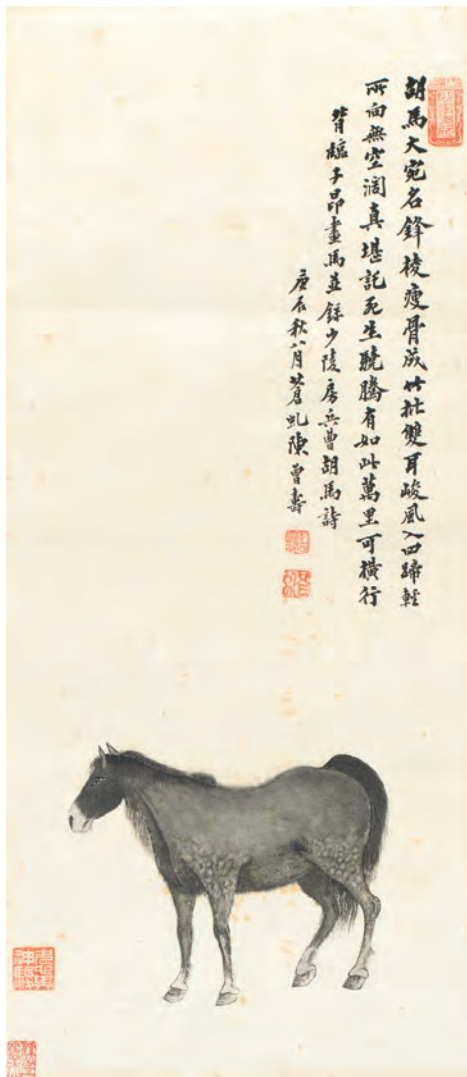 胡馬大宛名鋒棱瘦骨成竹批雙耳峻風入四蹄輕
所向無空濶真堪託死生驍騰有如此萬里可橫行
背臨子昂畫馬並錄少陵房兵曹胡馬詩
庚辰秋八月蒼虬陳曾壽